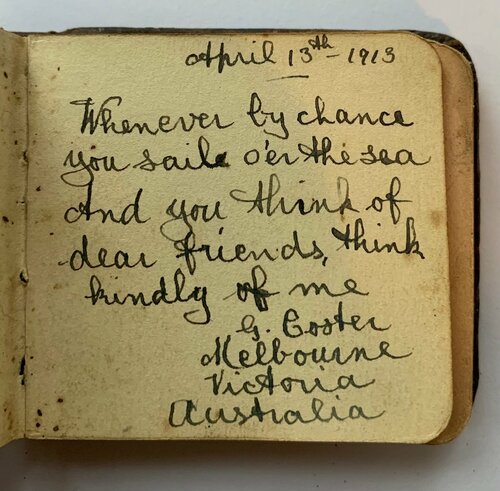 April 13th - 1913
Whenever by chance
you saile o'er the sea
And you think of
dear friends, think
kindly of me
G. Coster
Melbourne
Victoria
Australia